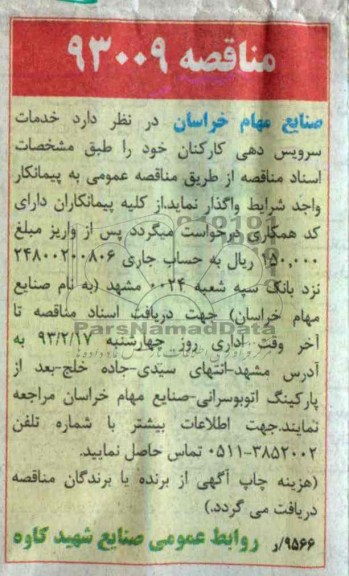 مناقصه ۹۳۰۰۹
صنایع مهام خراسان در نظر دارد خدمات
سرویس دهی کارکنان خود را طبق مشخصات
اسناد مناقصه از طریق مناقصه عمومی به پیمانکار
واجد شرایط واگذار نماید.از کلیه پیمانکاران دارای
کد همکاری درخواست میگردد پس از واریز مبلغ
۱۵۰,۰۰۰ ریال به حساب جاری ۲۴۸۰۰۲۰۰۸۰۶
نزد بانک سپه شعبه ۰۰۲۴ مشهد (به نام صنایع
مهام خراسان) جهت دریافت اسناد مناقصه تا
ParsNamadData
آخر وقت اداری روز چهارشنبه ۹۳/۲/۱۷ به
آدرس مشهد-انتهای سیدی-جاده خلج-بعد از
پارکینگ اتوبوسرانی-صنایع مهام خراسان مراجعه
نمایند.جهت اطلاعات بیشتر با شماره تلفن
۰۵۱۱-۳۸۵۲۰۰۲ تماس حاصل نمایید.
(هزینه چاپ آگهی از برنده یا برندگان مناقصه
دریافت می گردد.)
۹۵۶۶/ر روابط عمومی صنایع شهید کاوه